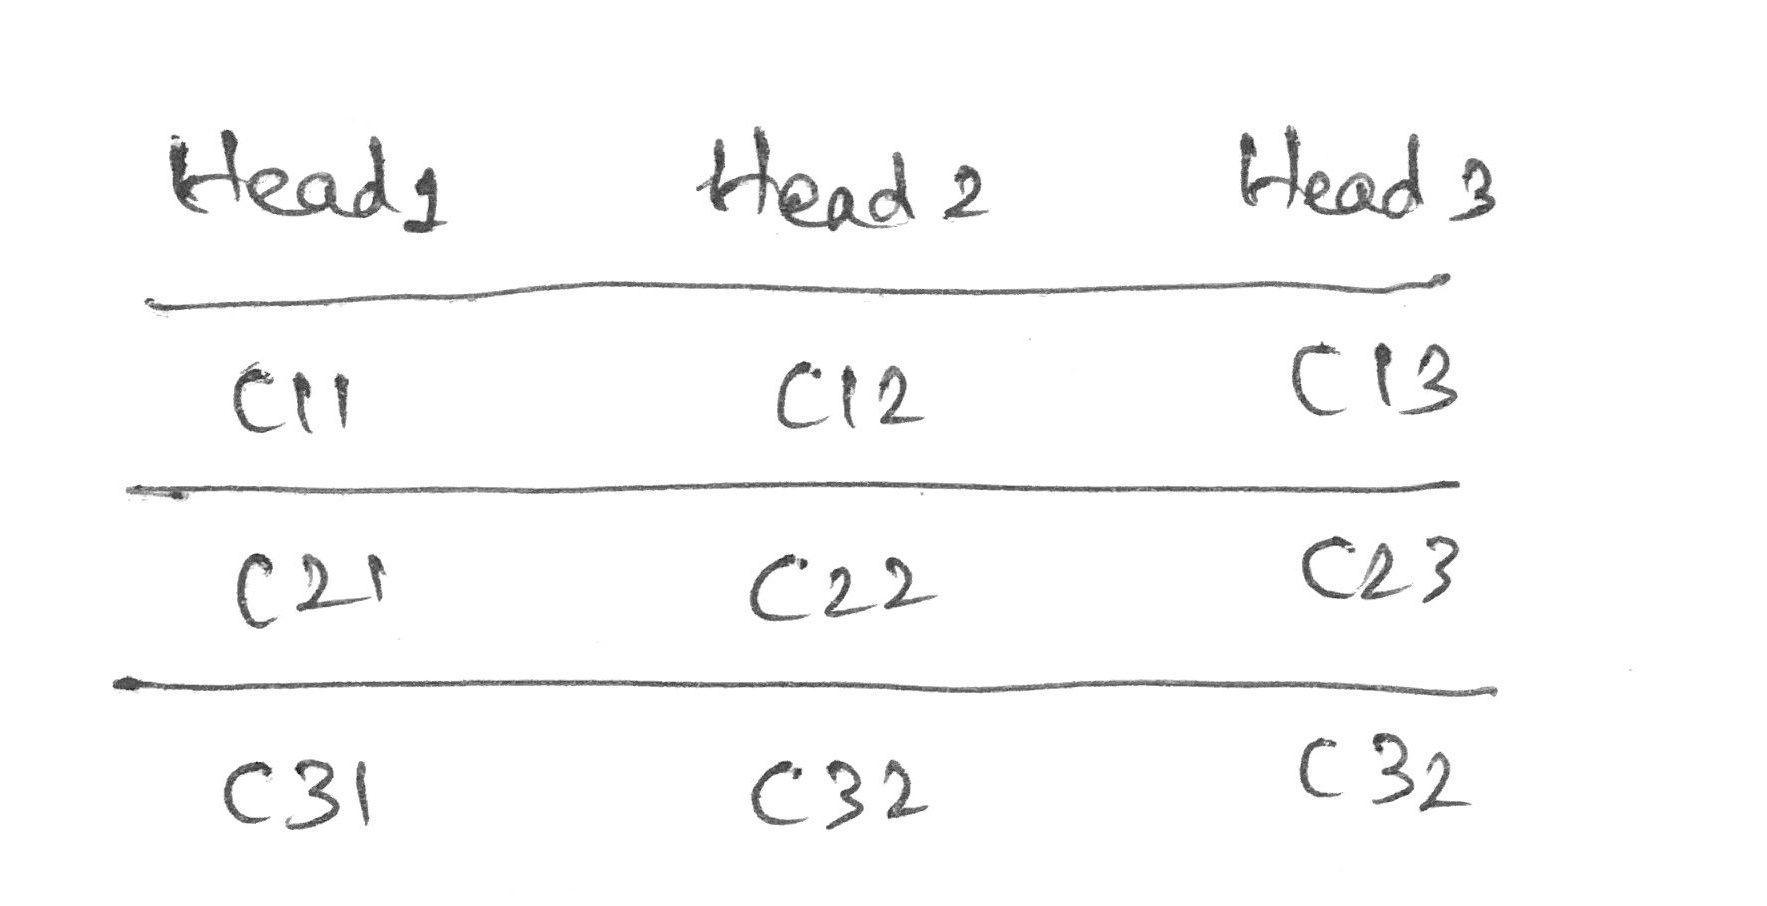 Head 1 Head 2 Head 3
C11 C12 C13
C21 C22 C23
C31 C32 C32